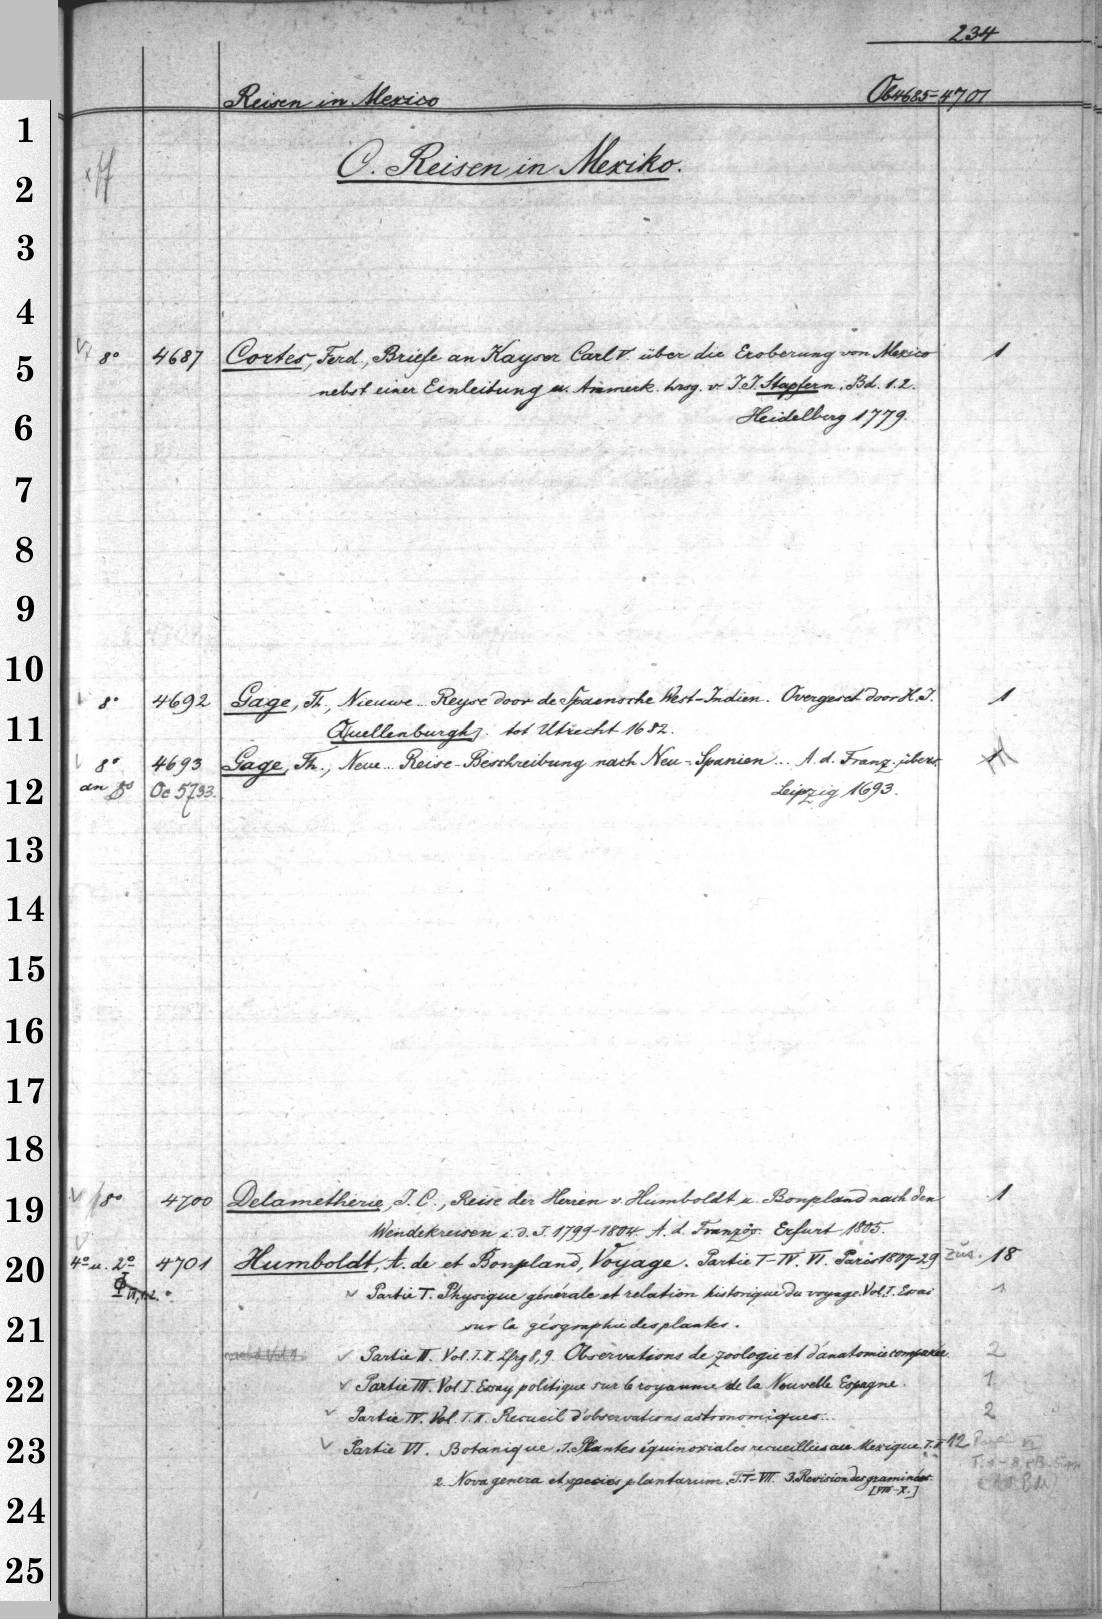 234
Reisen in Mexico Ob4685-4701
1
C. Reisen in Mexiko.
2
3
4
8° 4687 Cortes, Ferd., Briefe an Kayser Carl V. über die Eroberung von Mexico 1
5
nebst einer Einleitung u. Anmerk. hrsg. v J. J. Stapfern. Bd. 1.2.
Heidelberg 1779.
6
7
8
9
10
8° 4692 Gage, Th., Nieuwe... Reyse door de Spaensche West-Indien. Overgeset door H. J. 1
11
Quellenburgh. tot Utrecht 1682.
8° 4693 Gage, Th., Neue... Reise-Beschreibung nach Neu-Spanien... A. d. Franz. übers.
12
an 8° Oc 5733. Leipzig 1693.
13
14
15
16
17
18
8° 4700 Delametherie, J. C., Reise der Herren v. Humboldt u. Bonpland nach den 1
19
Wendekreisen i. d. J. 1799-1804. A. d. Französ. Erfurt 1805.
4° u. 2° 4701 Humboldt, A. de et Bonpland, Voyage. Partie I-IV. VI. Paris 1807-29 zus. 18
20
Partie I. Physique générale et relation historique du voyage. Vol. I. Essai 1
21
sur la géographie des plantes.
Partie II. Vol. I. II. Lfrg 8, 9. Observations de zoologie et d'anatomie comparée 2
22
Partie III. Vol I. Essay politique sur le royaume de la Nouvelle Espagne. 1
Partie IV. Vol. I. II. Recueil d'observations astronomiques... 2
23
Partie VI. Botanique. 1. Plantes équinoxiales recueillies au Mexique. T. II 12
2. Nova genera et species plantarum. T. I-VII. 3. Revision des graminées.
[VIII-X.]
24
25